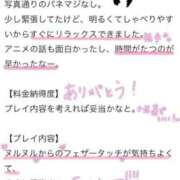 写真通りのパネマジなし。
少し緊張してたけど、明るくてしゃべりやす
いからすぐにリラックスできました。
アニメの話も面白かったし、時間がたつのが
早かったなー。
【料金納得度】
ありがとう!
プレイ内容を考えれば妥当かなと。
【プレイ内容】
ヌルヌルからのフェザータッチが気持ちよく
て、